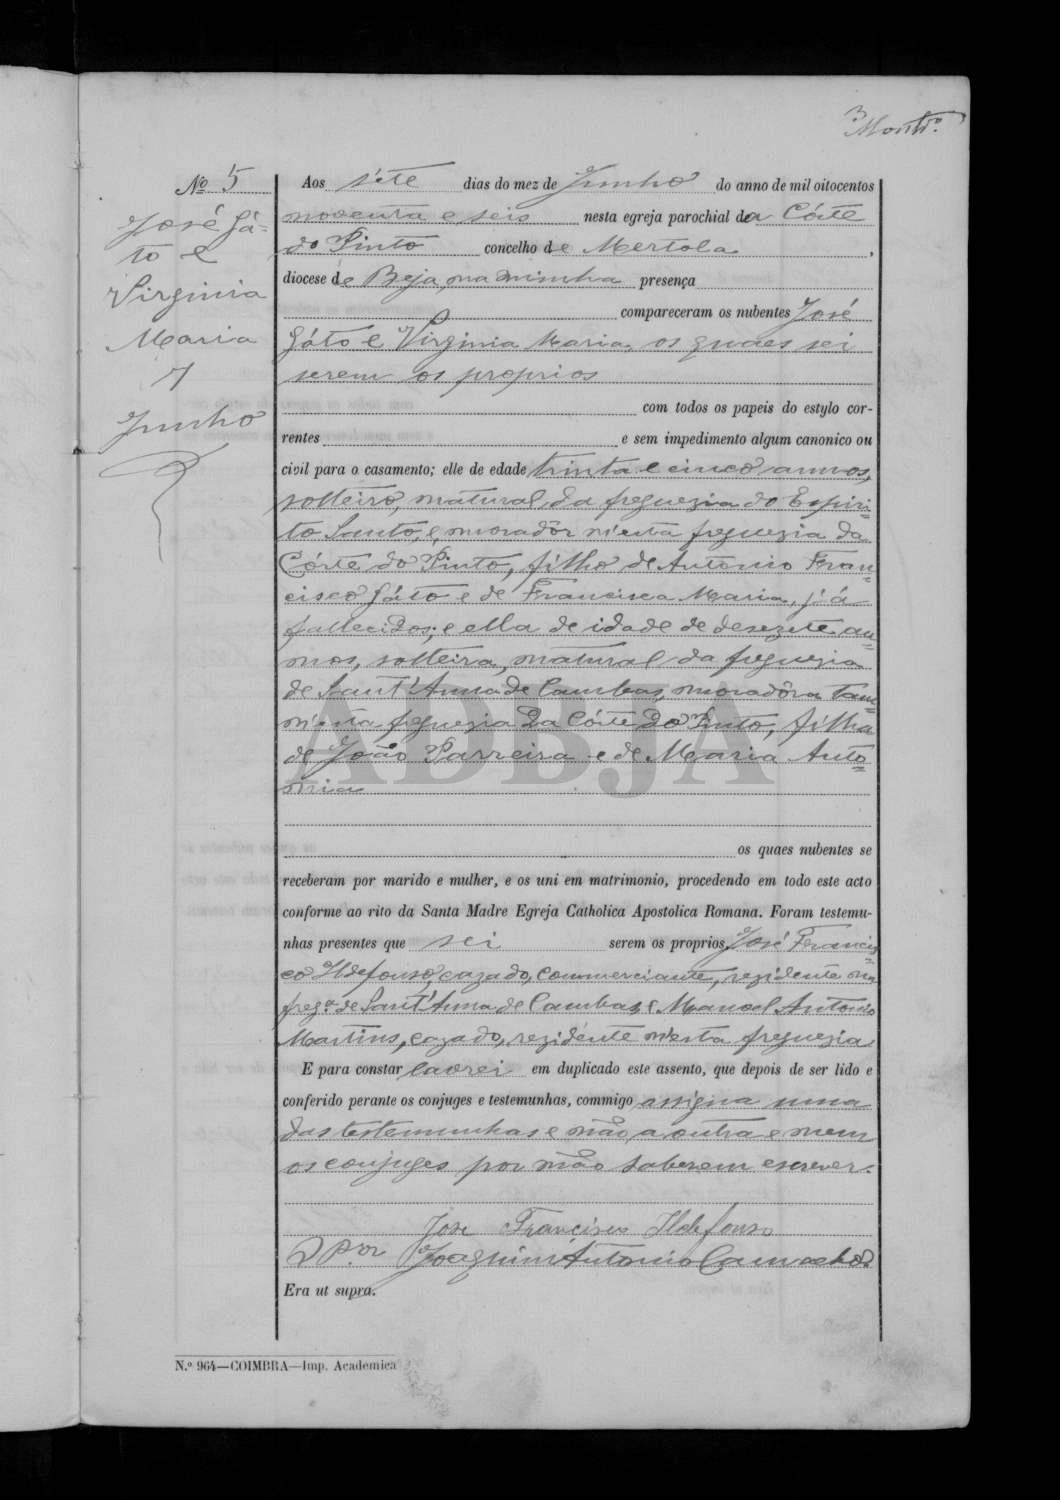 3
Montr.º
Nº 5
José Gá-
to e
Virginia
Maria
7
Junho
Aos séte dias do mez de Junho do anno de mil oitocentos
noventa e seis nesta egreja parochial da Córte
do Pinto concelho de Mertola,
diocese de Beja, na minha presença
compareceram os nubentes José
Gáto e Virginia Maria, os quaes sei
serem os proprios
com todos os papeis do estylo cor-
rentes e sem impedimento algum canonico ou
civil para o casamento; elle de edade trinta e cinco annos,
solteiro, natural da freguezia do Espiri=
to Santo, e, moradôr n'esta freguezia da
Córte do Pinto, filho de Antonio Fran=
cisco Gáto e de Francisca Maria, já
fallecidos; e ella de idade de desezete an=
nos, solteira, natural da freguezia
de Sant'Anna de Cambas, moradôra tam=
n'esta freguezia da Córte do Pinto, filha
de João Parreira e de Maria Anto=
nia
os quaes nubentes se
receberam por marido e mulher, e os uni em matrimonio, procedendo em todo este acto
conforme ao rito da Santa Madre Egreja Catholica Apostolica Romana. Foram testemu-
nhas presentes que sei serem os proprios, José Francis=
co Ildefonso, cazado, commerciante, rezidente na
freg.ª de Sant'Anna de Cambas, e Manoel Antonio
Martins, cazado, rezidente n'esta freguezia
E para constar lavrei em duplicado este assento, que depois de ser lido e
conferido perante os conjuges e testemunhas, commigo assigna uma
das testemunhas e não a outra e nem
os conjuges por não saberem escrever.
Jose Francisco Ildefonso
O P.or Joaquim Antonio Camacho.
Era ut supra.
N.º 964—COIMBRA—Imp. Academica
ADBJA